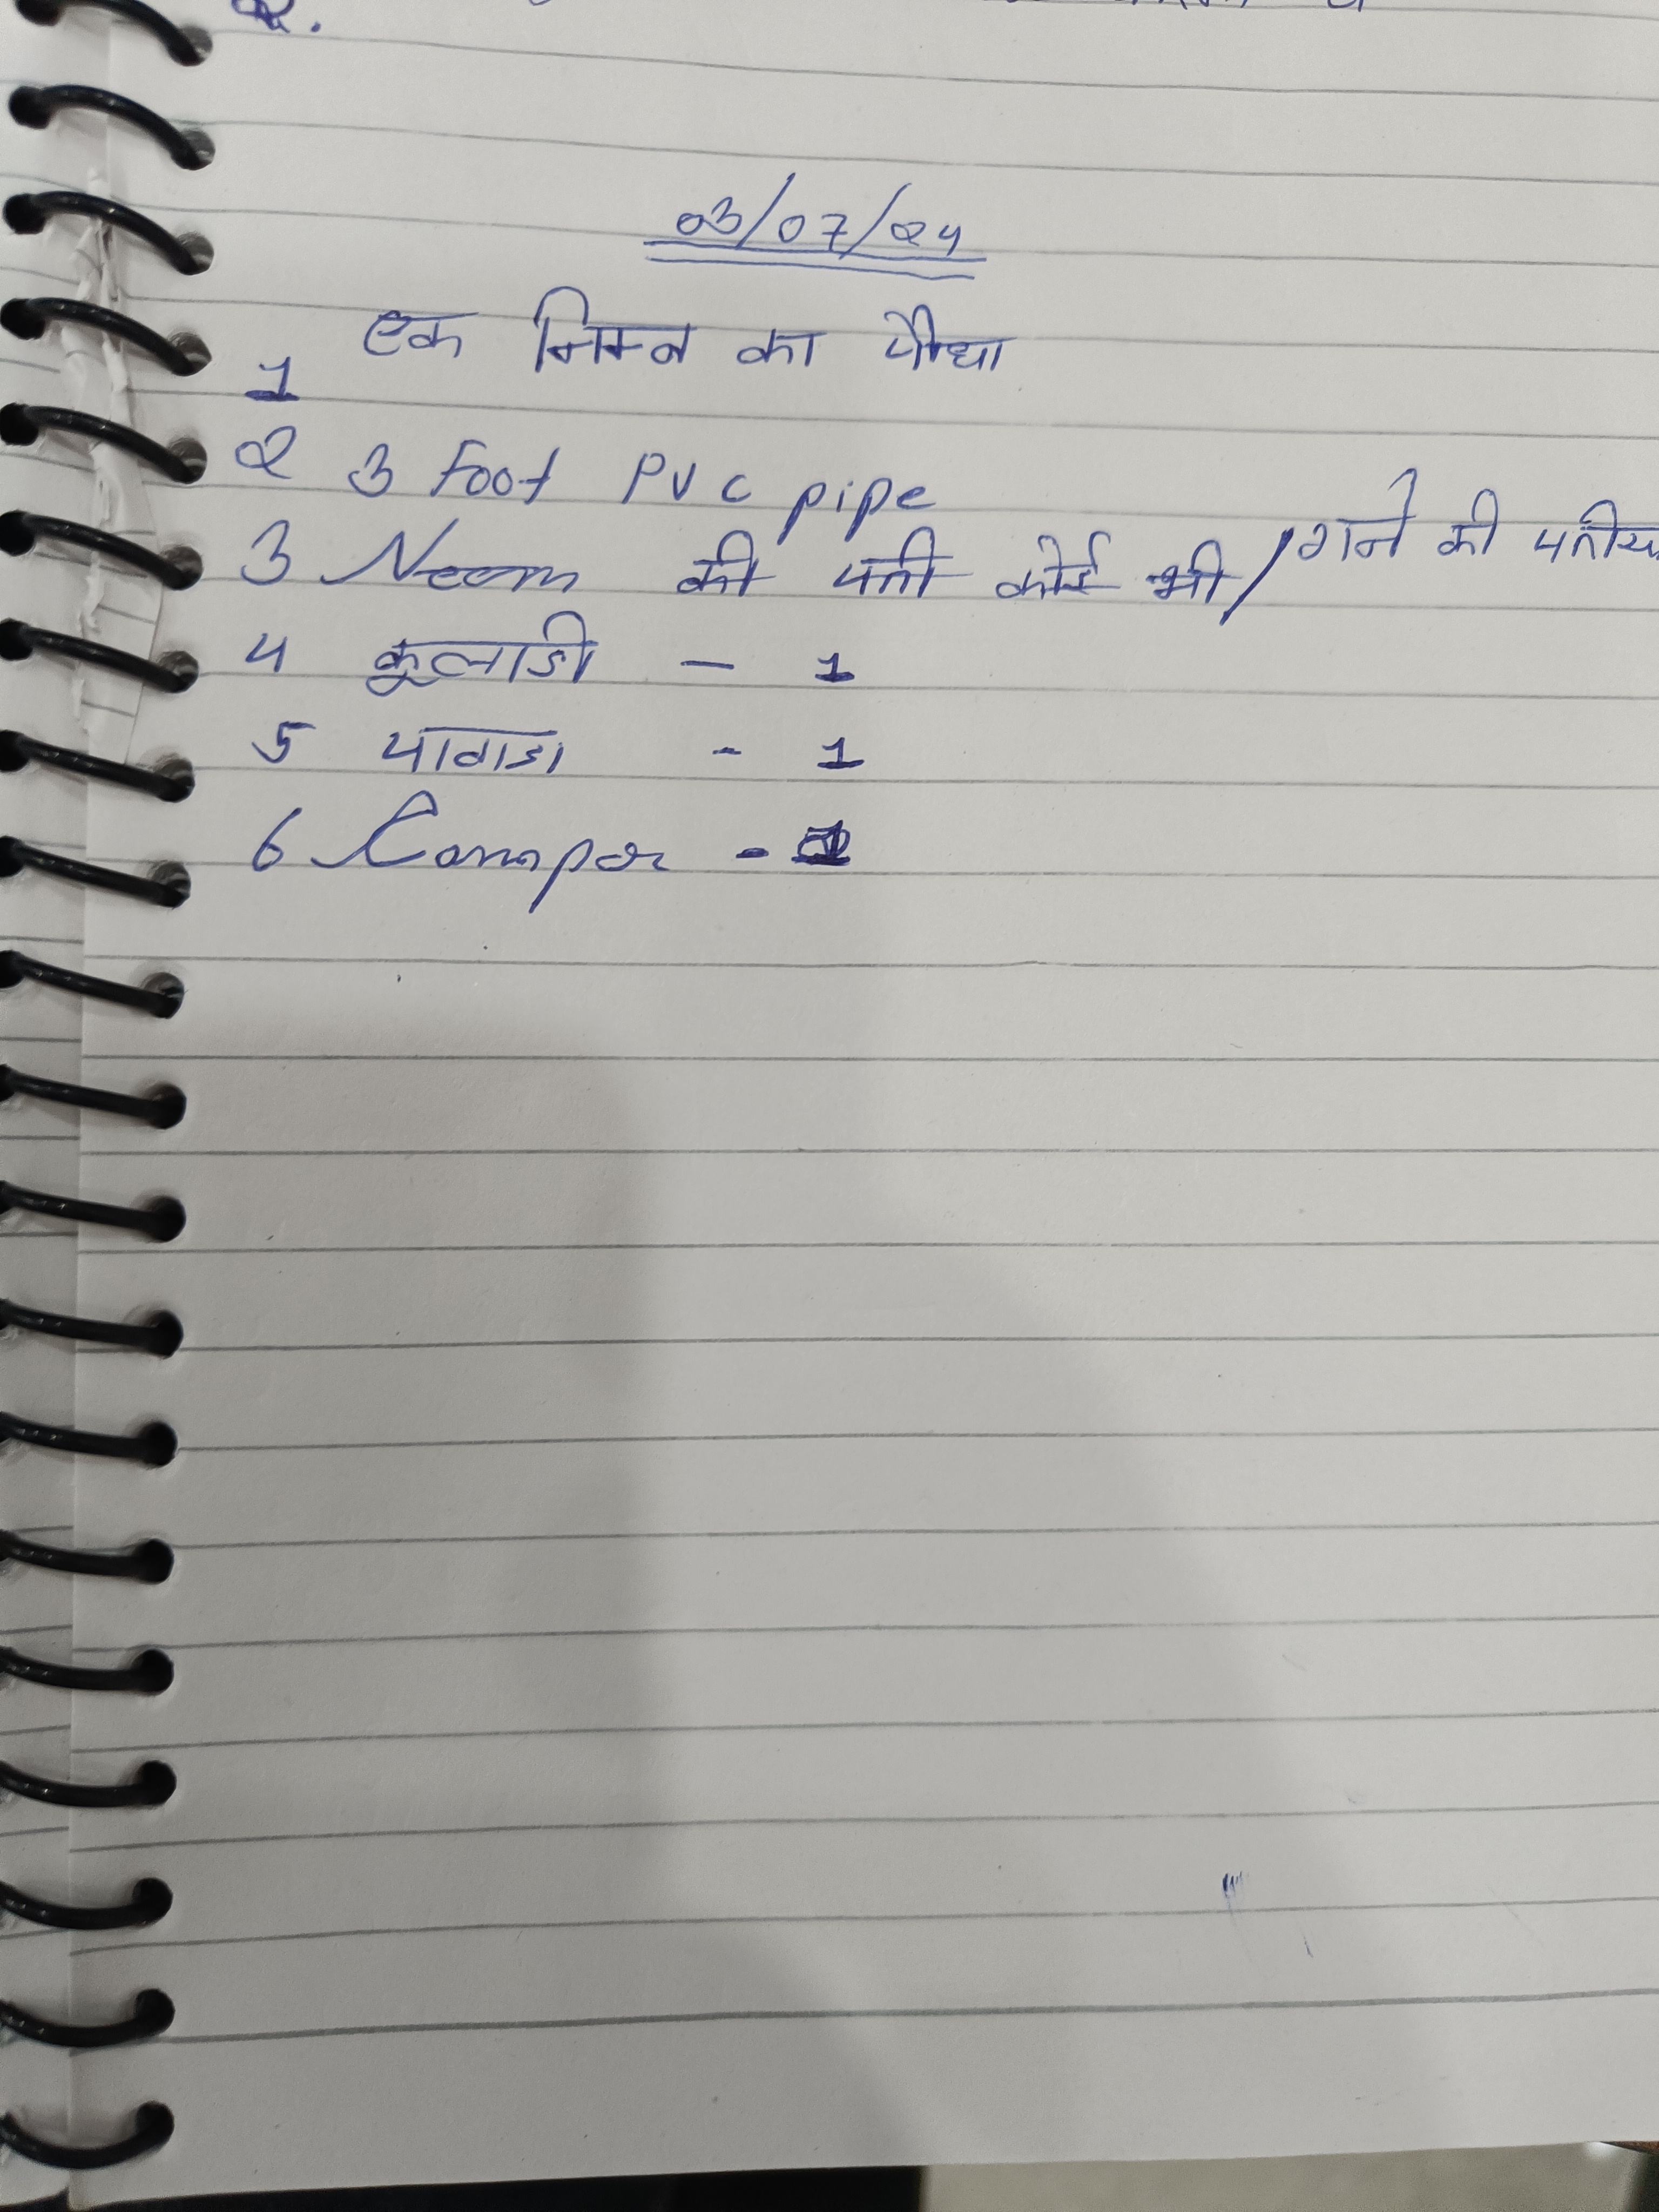 2.
03/07/24
1 एक निम्न का पौधा
2 3 Foot PVC pipe
3 Neem की पत्ती कोई भी / गन्ने की पत्तीया
4 कूलाडी - 1
5 पावाडा - 1
6 Campor - 1